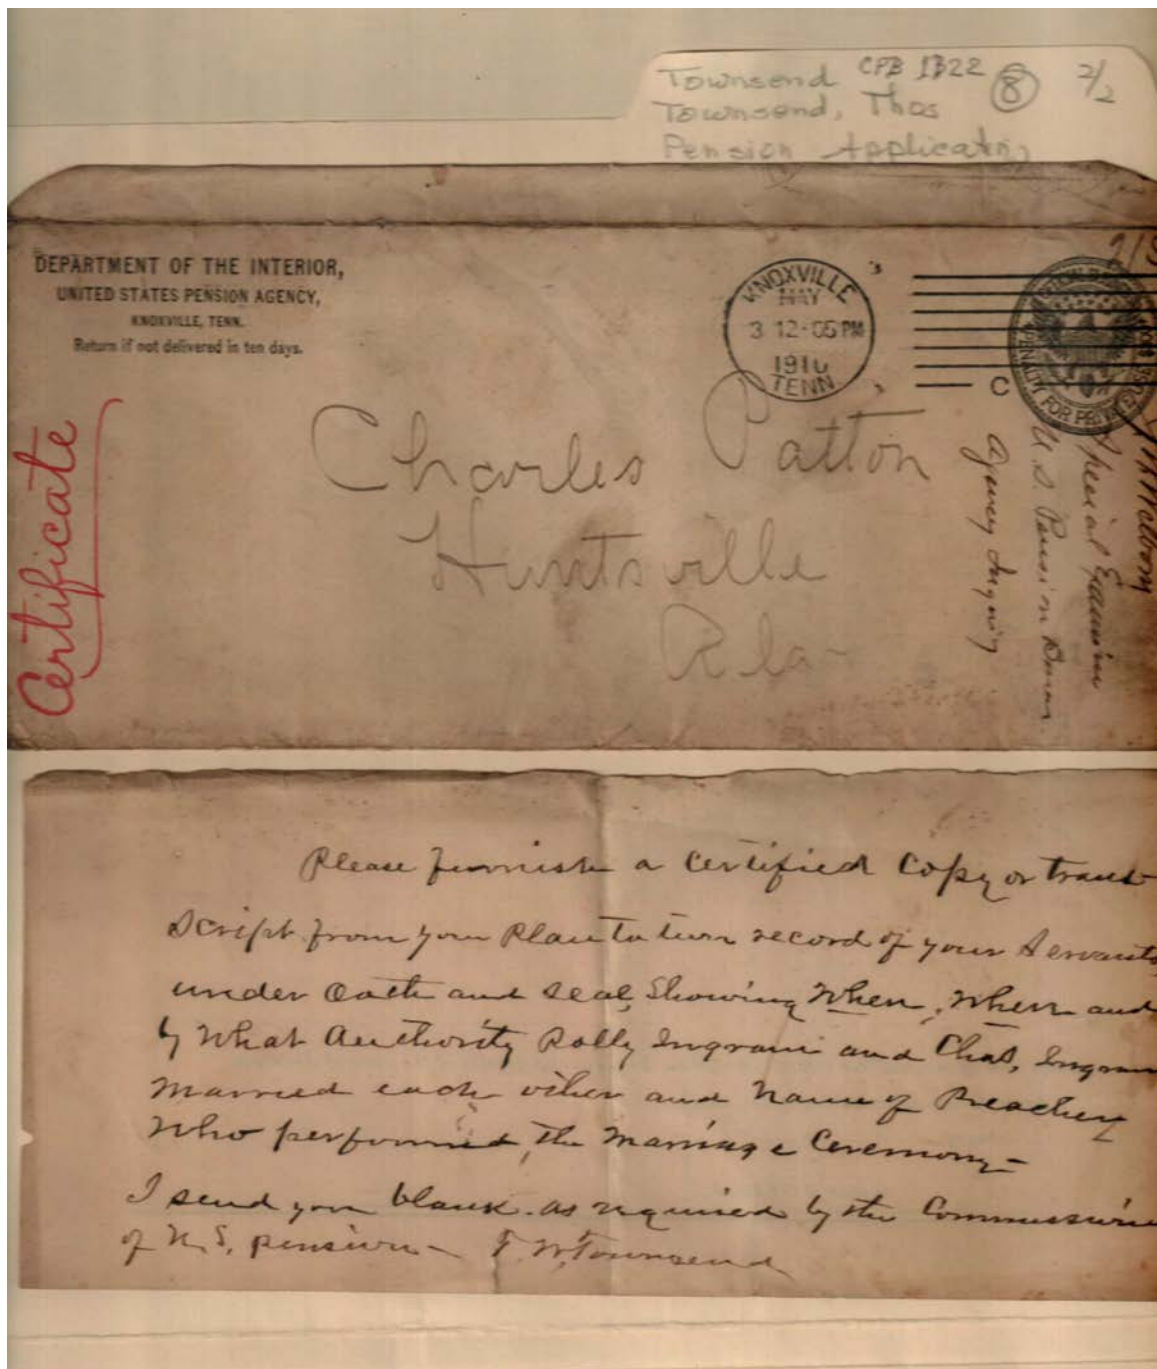 Townsend CPB 1B22 8 2/2
Townsend, Thos
Pension Application
DEPARTMENT OF THE INTERIOR,
UNITED STATES PENSION AGENCY,
KNOXVILLE, TENN.
Return if not delivered in ten days.
KNOXVILLE
MAY
3 12-05 PM
1910
TENN.
C
PENALTY FOR PRIVATE
Certificate
Charles Patton
Huntsville
Ala-
Special Examiner
U.S. Pension Bureau
Agency Inquiry
Please furnish a certified copy or tran
script from your Plantation record of your Servants
under oath and seal, showing When, Where and
by What Authority Polly Ingram and Chas, Ingram
Married each other and Name of Preacher
Who performed the Marriage Ceremony-
I send you blank as required by the Commissione
of U.S. pension- T. W. Townsend